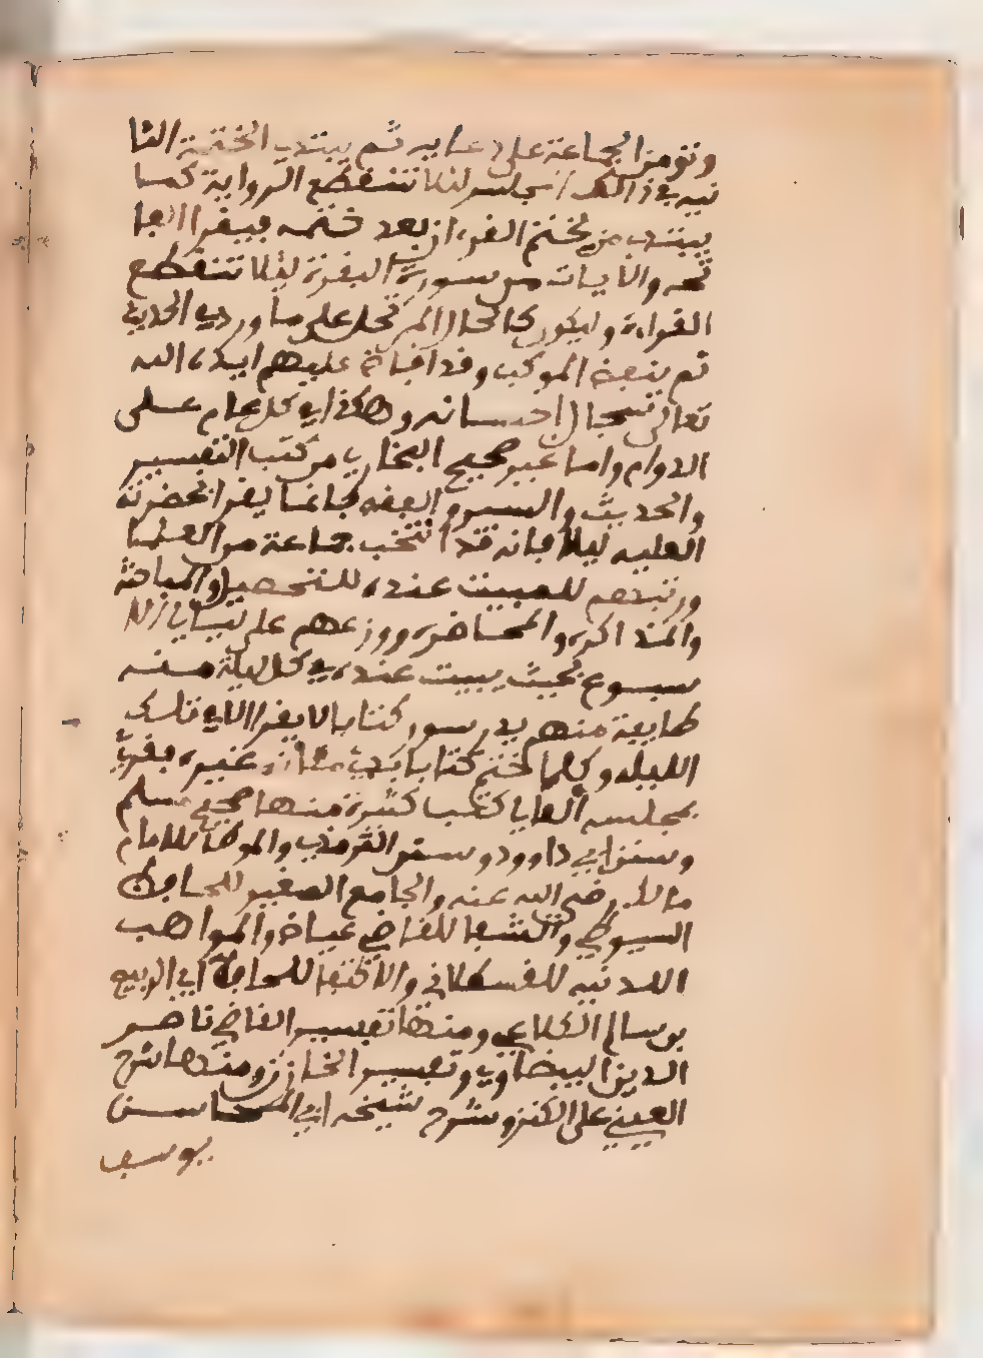 وتؤمن الجماعة على دعايه ثم يبتدي الختمة الثا
نيه في ذالك المجلس لئلا تنقطع الرواية كما
يبتدي من يختم القرءان بعد ختمه فيقرا الفا
تحه والايات من سورة البقرة ليلا تنقطع
القراءة وليكون كالحال المرتحل على ما ورد في الحديث
ثم ينفض الموكب وقد افاض عليهم ايده الله
تعالى سجال احسانه وهكذا في كل عام على
الدوام واما غير صحيح البخاري من كتب التفسير
والحديث والسير والفقه فانما يقرا بحضرته
العليه ليلا فانه قد انتخب جماعة من العلما
ورتبهم للمبيت عنده للتحصيل والمباحثة
والمذاكره والمحاضره ووزعهم على ليالي الا
سبوع بحيث يبيت عنده في كل ليلة منه
طايفة منهم يدرسون كتابا لا يقرا الا في تلك
الليله وكلما ختم كتابا بدئ مكانه غيره فقرئ
بمجلسه العالي كتب كثيرة منها صحيح مسلم
وسنن ابي داوود وسنن الترمذي والموطا للامام
مالك رضي الله عنه والجامع الصغير للحافظ
السيوطي والشفا للقاضي عياض والمواهب
اللدنيه للقسطلاني والاكتفا للحافظ ابي الربيع
بن سالم الكلاعي ومنها تفسير القاضي ناصر
الدين البيضاوي وتفسير الخازن ومنها شرح
العيني على الكنز وشرح شيخه ابي المحاسن
يوسف